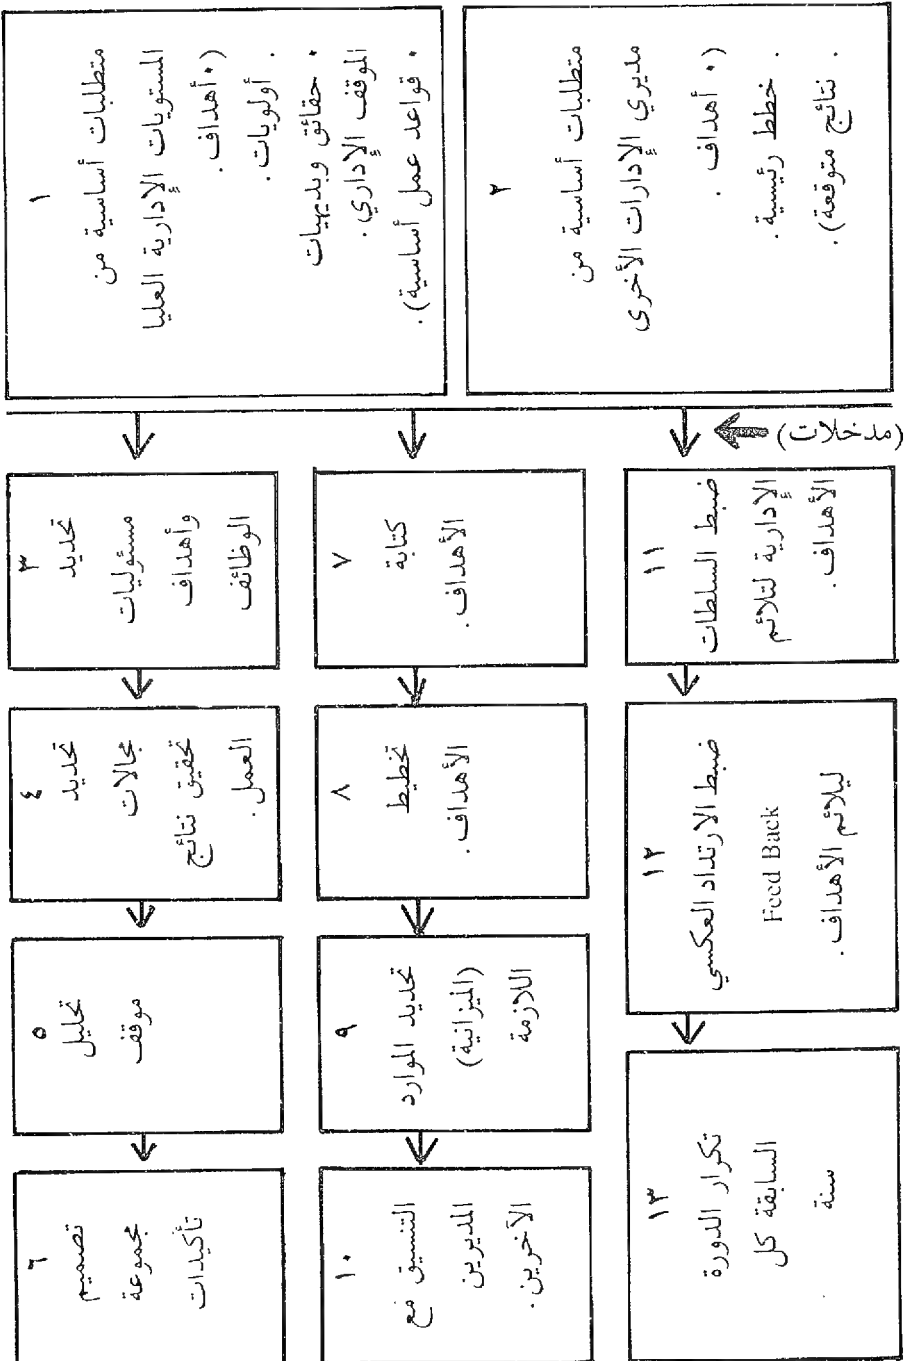 ١
متطلبات أساسية من
المستويات الإدارية العليا
(٠ أهداف .
. أولويات .
٠ حقائق وبديهيات
الموقف الإداري .
٠ قواعد عمل أساسية) .
٢
متطلبات أساسية من
مديري الإدارات الأخرى
(٠ أهداف .
. خطط رئيسية .
. نتائج متوقعة) .
(مدخلات)
٣
تحديد
مسئوليات
وأهداف
الوظائف
٤
تحديد
مجالات
تحقيق نتائج
العمل .
٥
تحليل
موقف
٦
تصميم
مجموعة
تأكيدات
٧
كتابة
الأهداف .
٨
تخطيط
الأهداف .
٩
تحديد الموارد
(الميزانية)
اللازمة
١٠
التنسيق مع
المديرين
الآخرين .
١١
ضبط السلطات
الإدارية لتلائم
الأهداف .
١٢
ضبط الارتداد العكسي
Feed Back
ليلائم الأهداف .
١٣
تكرار الدورة
السابقة كل
سنة